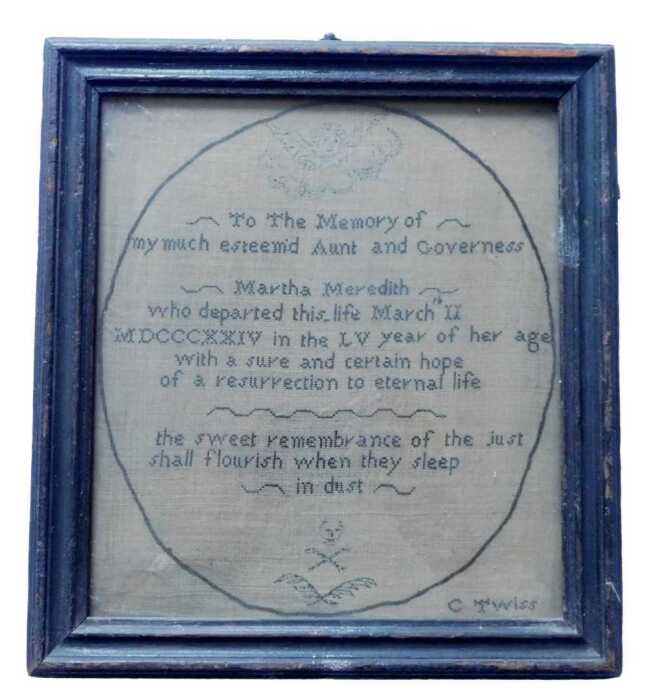 To The Memory of
my much esteem'd Aunt and Governess
Martha Meredith
who departed this life March th II
MDCCCXXIV in the LV year of her age
with a sure and certain hope
of a resurrection to eternal life
the sweet remembrance of the just
shall flourish when they sleep
in dust
C Twiss